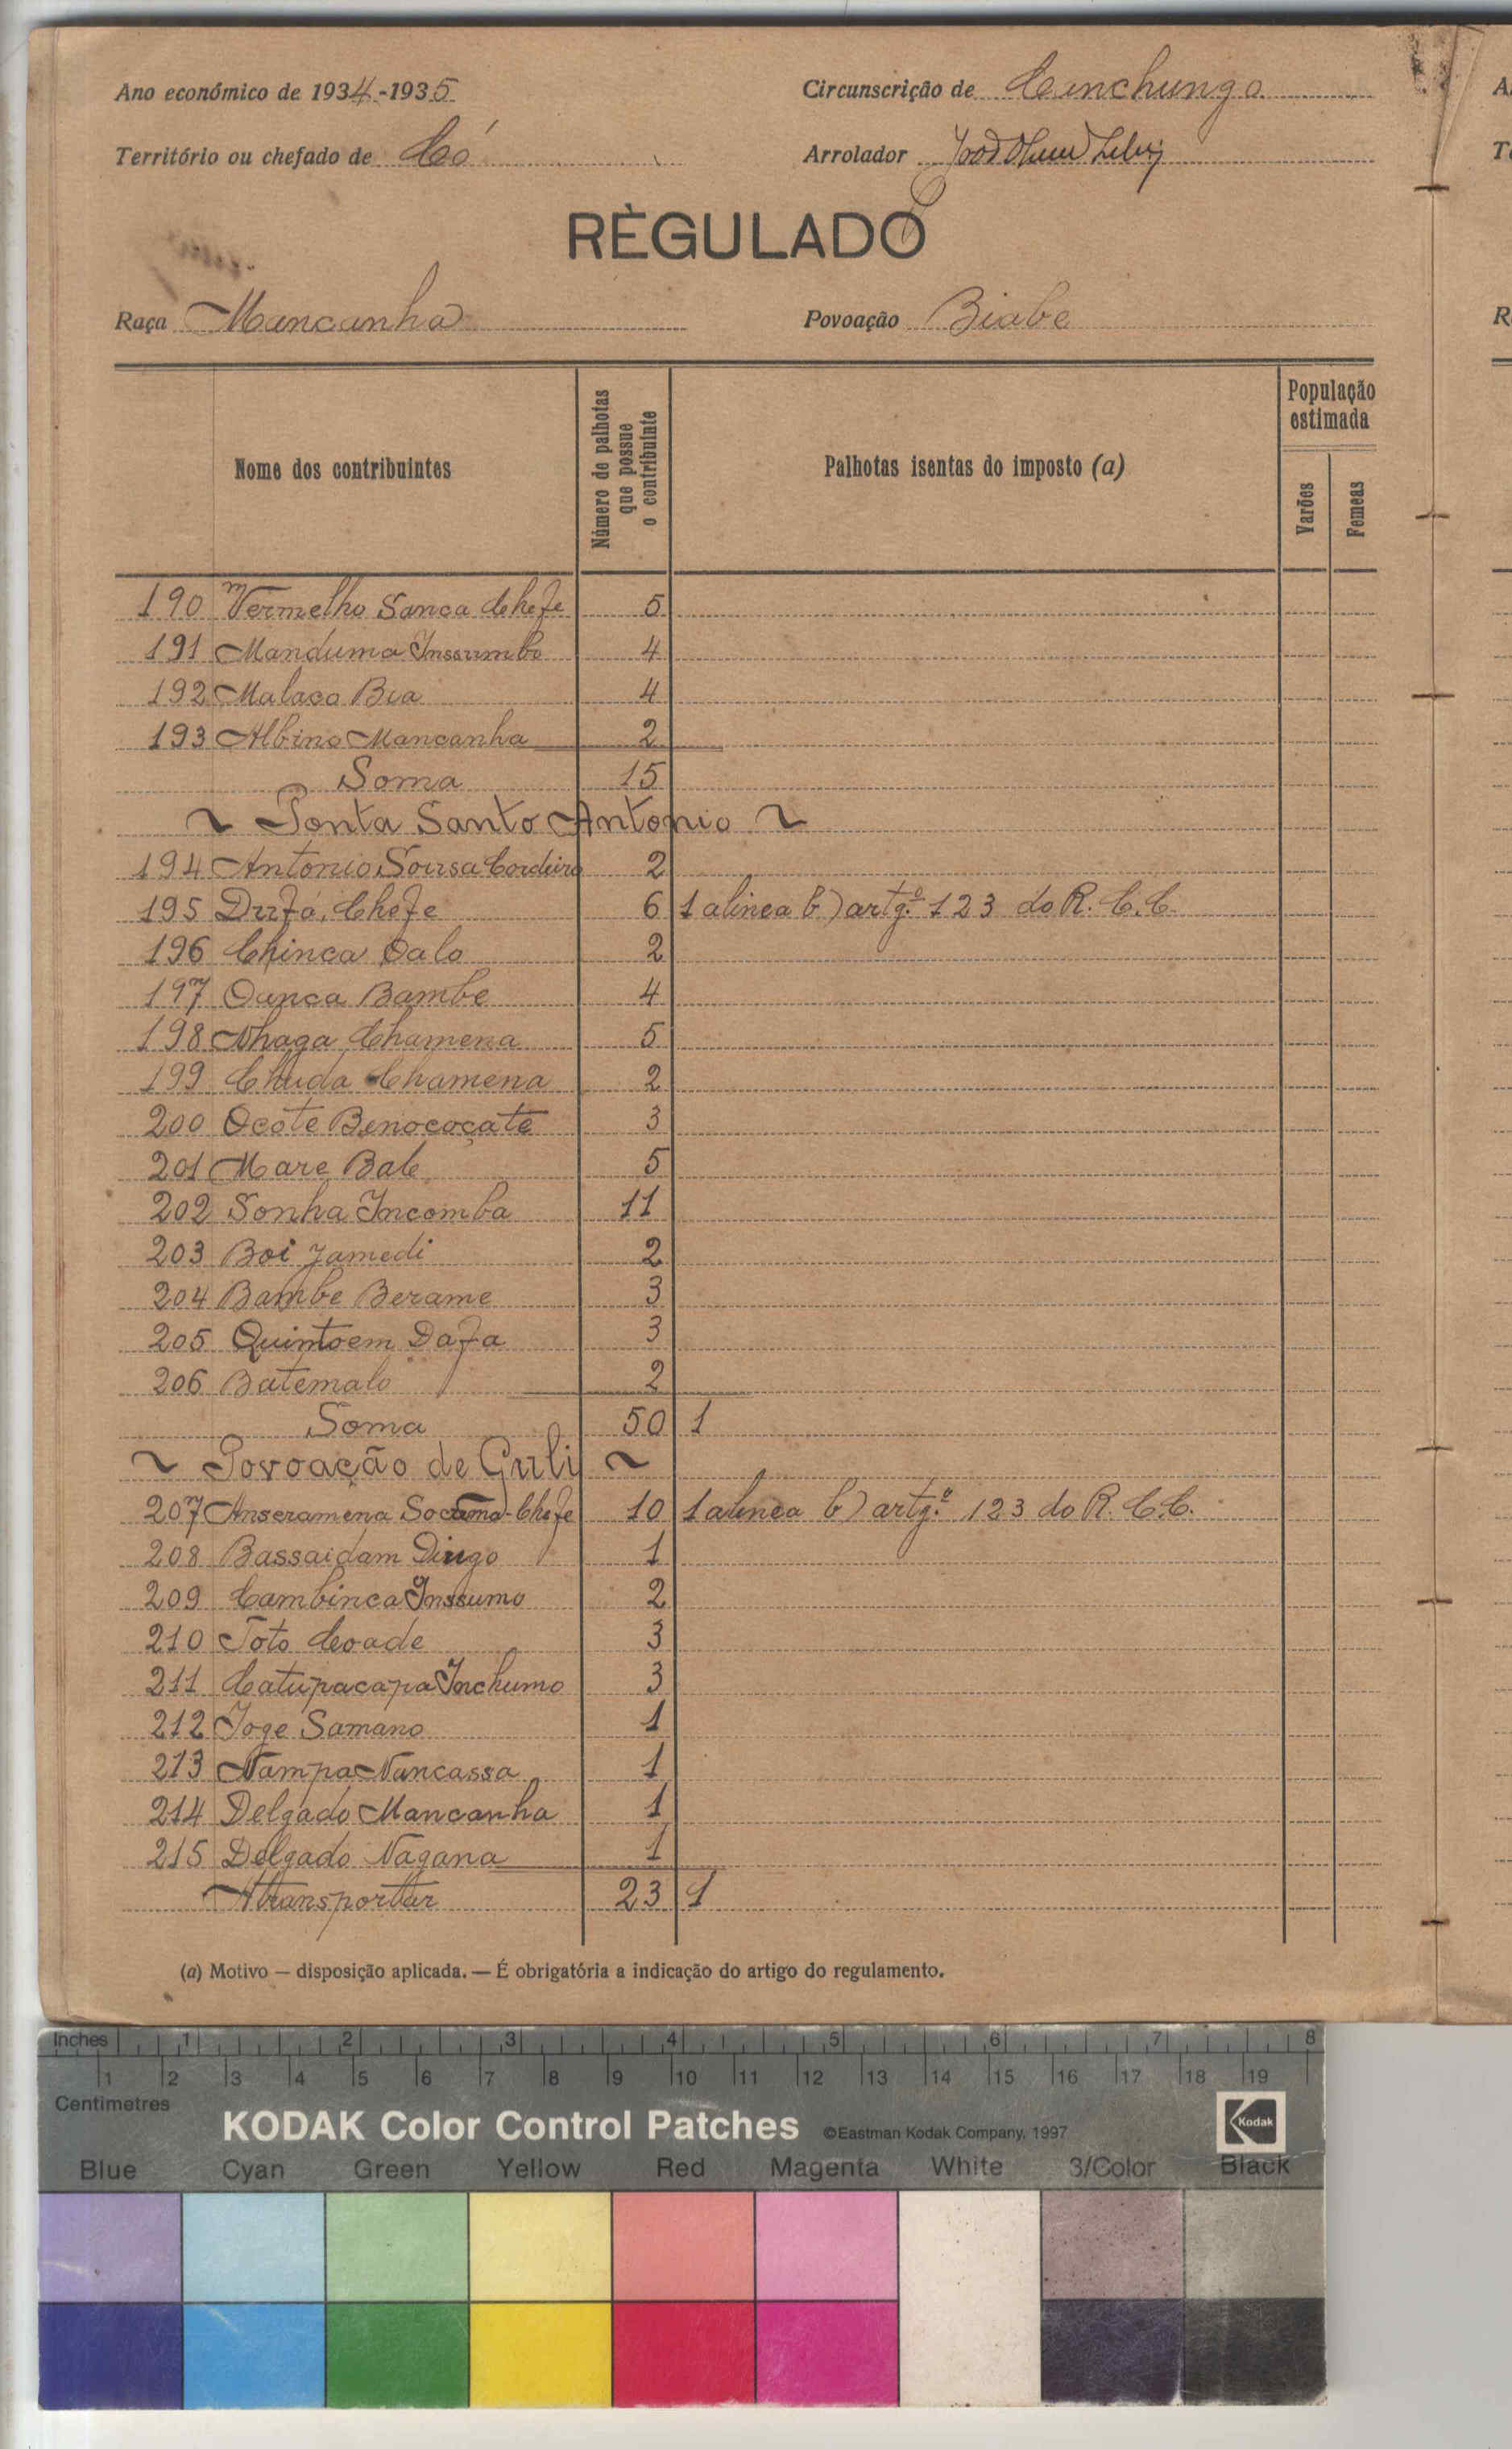 Ano económico de 1934-1935
Circunscrição de Canchungo
Território ou chefado de Có
Arrolador
RÈGULADO
Raça Mancanha
Povoação Biabe
Nome dos contribuintes
Número de palhotas que possue o contribuinte
Palhotas isentas do imposto (a)
População estimada
Varões
Femeas
190 Vermelho Sanca Chefe 5
191 Manduma Inssumbo 4
192 Malaco Bia 4
193 Albino Mancanha 2
Soma 15
~ Ponta Santo Antonio ~
194 Antonio Sousa Cordeiro 2
195 Dufá, Chefe 6 1 alinea b) artg.º 123 do R. C. C.
196 Chinca Oalo 2
197 Oanca Bambe 4
198 Nhaga Chamena 5
199 Chuda Chamena 2
200 Ocote Benococate 3
201 Mare Bale 5
202 Sonha Incomba 11
203 Boi Jamedi 2
204 Bambe Berame 3
205 Quintoem Dafa 3
206 Batemalo 2
Soma 50 1
~ Povoação de Guli ~
207 Anseramena Chefe 10 1 alinea b) artg.º 123 do R. C. C.
208 Bassaidam Dingo 1
209 Cambinca Inssumo 2
210 Toto Coade 3
211 Catupacapa Inchumo 3
212 Joge Samano 1
213 Nampa Nancassa 1
214 Delgado Mancanha 1
215 Delgado Nagana 1
A transportar 23 1
(a) Motivo — disposição aplicada. — É obrigatória a indicação do artigo do regulamento.
Inches 1 2 3 4 5 6 7 8
1 2 3 4 5 6 7 8 9 10 11 12 13 14 15 16 17 18 19
Centimetres
KODAK Color Control Patches ©Eastman Kodak Company, 1997 Kodak
Blue Cyan Green Yellow Red Magenta White 3/Color Black